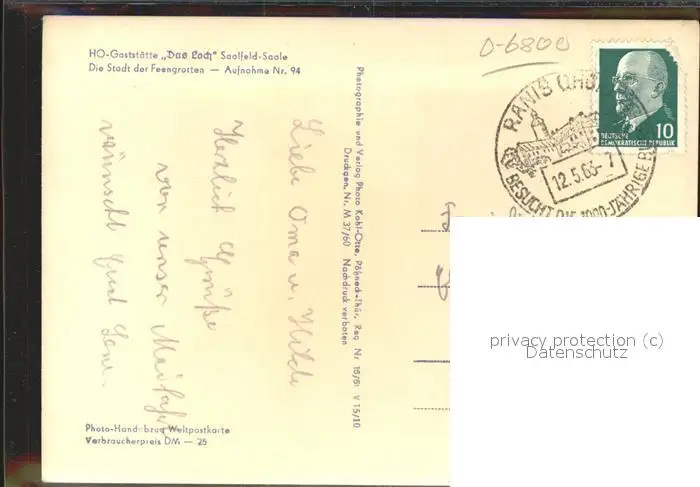 HO-Gaststätte „Das Loch" Saalfeld-Saale
Die Stadt der Feengrotten — Aufnahme Nr. 94
0-6800
RANIS (THÜ
BESUCHT DIE 1000-JÄHRIGE BU
12.5.65-7
10
DEUTSCHE
DEMOKRATISCHE REPUBLIK
Liebe Oma u. Hilde
Herzlich Grüße
von unser Maifahrt
wünscht
Photographie und Verlag Photo Kohl-Otte, Pößneck-Thür. Reg. Nr 16/61 V 15/10
Druckgen. Nr. M 37/60 Nachdruck verboten
privacy protection (c)
Datenschutz
Photo-Handabzug Weltpostkarte
Verbraucherpreis DM — 25